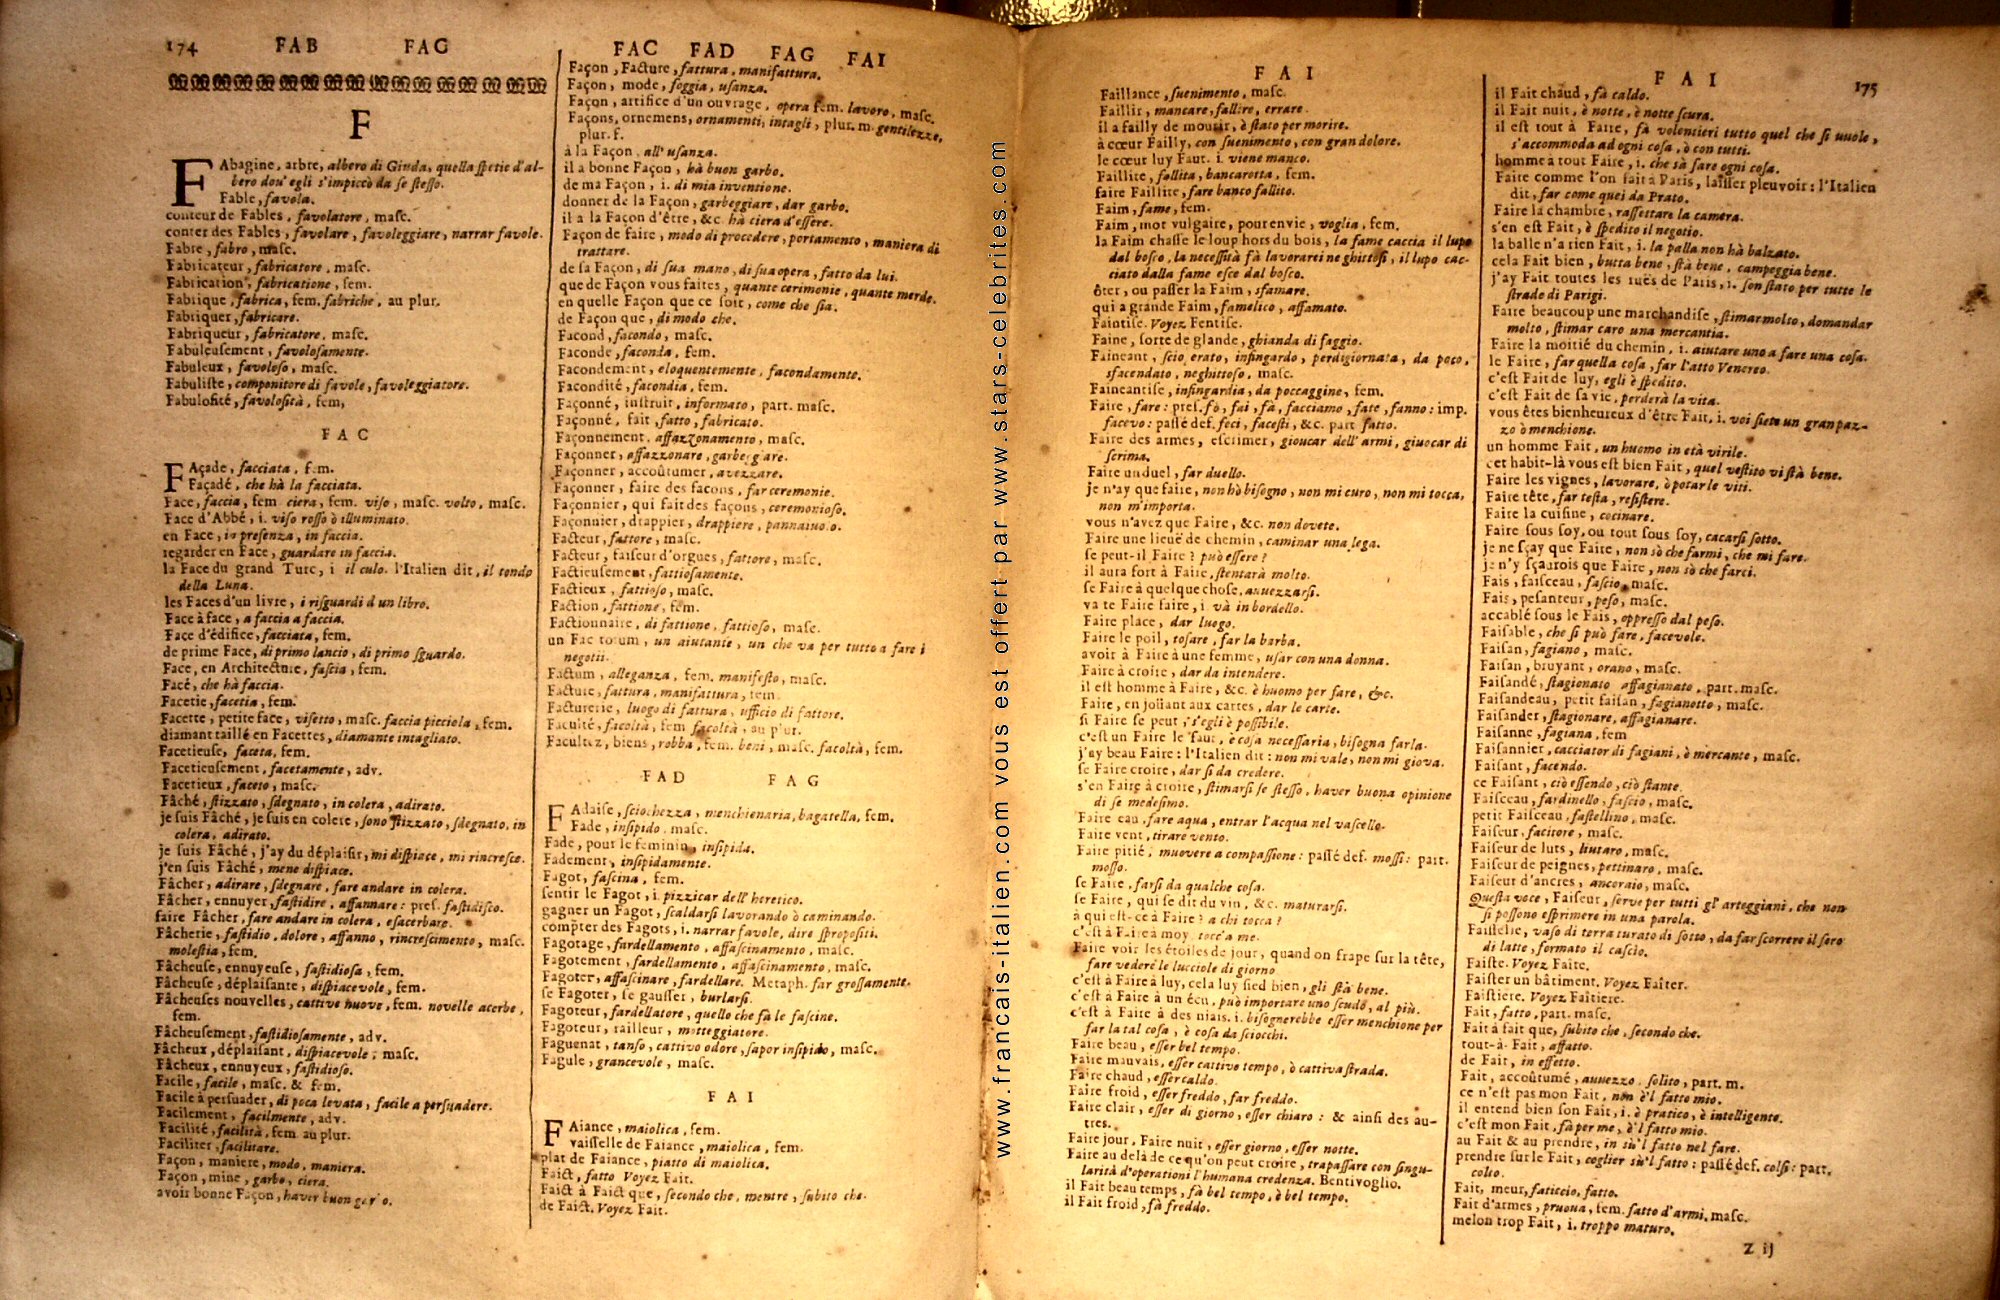 174 FAB FAG
F
FAbagine, arbre, albero di Giuda, quella spetie d'al-
bero dou' egli s'impiccò da se stesso.
Fable, favola.
conteur de Fables, favolatore, masc.
conter des Fables, favolare, favoleggiare, narrar favole.
Fabre, fabro, masc.
Fabricateur, fabricatore, masc.
Fabrication, fabricatione, fem.
Fabrique, fabrica, fem. fabriche, au plur.
Fabriquer, fabricare.
Fabriqueur, fabricatore, masc.
Fabuleusement, favolosamente.
Fabuleux, favoloso, masc.
Fabuliste, componitore di favole, favoleggiatore.
Fabulosité, favolosità, fem,
FAC
FAçade, facciata, fem.
Façadé, che hà la facciata.
Face, faccia, fem ciera, fem. viso, masc. volto, masc.
Face d'Abbé, i. viso rosso ò illuminato.
en Face, in presenza, in faccia.
regarder en Face, guardare in faccia.
la Face du grand Turc, i il culo. l'Italien dit, il tondo
della Luna.
les Faces d'un livre, i risguardi d'un libro.
Face à face, a faccia a faccia.
Face d'édifice, facciata, fem.
de prime Face, di primo lancio, di primo sguardo.
Face, en Architecture, fascia, fem.
Facé, che hà faccia.
Facetie, facetia, fem.
Facette, petite face, visetto, masc. faccia picciola, fem.
diamant taillé en Facettes, diamante intagliato.
Facetieuse, faceta, fem.
Facetieusement, facetamente, adv.
Facetieux, faceto, masc.
Fâché, stizzato, sdegnato, in colera, adirato.
je suis Fâché, je suis en colere, sono stizzato, sdegnato, in
colera, adirato.
je suis Fâché, j'ay du déplaisir, mi dispiace, mi rincresce.
j'en suis Fâché, mene dispiace.
Fâcher, adirare, sdegnare, fare andare in colera.
Fâcher, ennuyer, fastidire, affannare: pres. fastidisco.
faire Fâcher, fare andare in colera, esacerbare.
Fâcherie, fastidio, dolore, affanno, rincrescimento, masc.
molestia, fem.
Fâcheuse, ennuyeuse, fastidiosa, fem.
Fâcheuse, déplaisante, dispiacevole, fem.
Fâcheuses nouvelles, cattive nuove, fem. novelle acerbe,
fem.
Fâcheusement, fastidiosamente, adv.
Fâcheux, déplaisant, dispiacevole, masc.
Fâcheux, ennuyeux, fastidioso.
Facile, facile, masc. & fem.
Facile à persuader, di poca levata, facile a persuadere.
Facilement, facilmente, adv.
Facilité, facilità, fem au plur.
Faciliter, facilitare.
Façon, maniere, modo, maniera.
Façon, mine, garbo, ciera.
avoir bonne Façon, haver buon garbo.
FAC FAD FAG FAI
Façon, Facture, fattura, manifattura.
Façon, mode, foggia, usanza.
Façon, artifice d'un ouvrage, opera fem. lavoro, masc.
Façons, ornemens, ornamenti, intagli, plur. m. gentilezze,
plur. f.
à la Façon, all' usanza.
il a bonne Façon, hà buon garbo.
de ma Façon, i. di mia inventione.
donner de la Façon, garbeggiare, dar garbo.
il a la Façon d'être, &c hà ciera d'essere.
Façon de faire, modo di procedere, portamento, maniera di
trattare.
de sa Façon, di sua mano, di sua opera, fatto da lui.
que de Façon vous faites, quante cerimonie, quante merde.
en quelle Façon que ce soit, come che sia.
de Façon que, di modo che.
Facond, facondo, masc.
Faconde, faconda, fem.
Facondement, eloquentemente, facondamente.
Facondité, facondia, fem.
Façonné, instruit, informato, part. masc.
Façonné, fait, fatto, fabricato.
Façonnement, affazzonamento, masc.
Façonner, affazzonare, garbeggiare.
Façonner, accoûtumer, avezzare.
Façonner, faire des facons, far ceremonie.
Façonnier, qui fait des façons, ceremonioso.
Façonnier, drappier, drappiere, pannaiuolo.
Facteur, fattore, masc.
Facteur, faiseur d'orgues, fattore, masc.
Factieusement, fattiosamente.
Factieux, fattioso, masc.
Faction, fattione, fem.
Factionnaire, di fattione, fattioso, masc.
un Fac totum, un aiutante, un che va per tutto a fare i
negotii.
Factum, alleganza, fem. manifesto, masc.
Facture, fattura, manifattura, fem.
Facturerie, luogo di fattura, ufficio di fattore.
Faculté, facoltà, fem facoltà, au plur.
Facultez, biens, robba, fem. beni, masc. facoltà, fem.
FAD FAG
FAdaise, sciochezza, menchienaria, bagatella, fem.
Fade, insipido, masc.
Fade, pour le feminin, insipida.
Fadement, insipidamente.
Fagot, fascina, fem.
sentir le Fagot, i. pizzicar dell' heretico.
gagner un Fagot, scaldarsi lavorando ò caminando.
compter des Fagots, i. narrar favole, dire spropositi.
Fagotage, fardellamento, affascinamento, masc.
Fagotement, fardellamento, affascinamento, masc.
Fagoter, affascinare, fardellare. Metaph. far grossamente.
se Fagoter, se gausser, burlarsi.
Fagoteur, fardellatore, quello che fà le fascine.
Fagoteur, railleur, motteggiatore.
Faguenat, tanfo, cattivo odore, sapor insipido, masc.
Fagule, grancevole, masc.
FAI
FAiance, maiolica, fem.
vaisselle de Faiance, maiolica, fem.
plat de Faiance, piatto di maiolica.
Faict, fatto Voyez Fait.
Faict à Faict que, secondo che, mentre, subito che.
de Faict. Voyez Fait.
www.francais-italien.com vous est offert par www.stars-celebrites.com
FAI
Faillance, suenimento, masc.
Faillir, mancare, fallire, errare.
il a failly de mourir, è stato per morire.
à cœur Failly, con suenimento, con gran dolore.
le cœur luy Faut. i. viene manco.
Faillite, fallita, bancarotta, fem.
faire Faillite, fare banco fallito.
Faim, fame, fem.
Faim, mot vulgaire, pour envie, voglia, fem.
la Faim chasse le loup hors du bois, la fame caccia il lupo
dal bosco, la necessità fà lavorare i neghittosi, il lupo cac-
ciato dalla fame esce dal bosco.
ôter, ou passer la Faim, sfamare.
qui a grande Faim, famelico, affamato.
Faintise. Voyez Fentise.
Faine, sorte de glande, ghianda di faggio.
Faineant, scioperato, infingardo, perdigiornata, da poco,
sfacendato, neghittoso, masc.
Faineantise, infingardia, da poccaggine, fem.
Faire, fare: pres. fò, fai, fà, facciamo, fate, fanno: imp.
facevo: passé def. feci, facesti, &c. part fatto.
Faire des armes, escrimer, giuocar dell' armi, giuocar di
scrima.
Faire un duel, far duello.
je n'ay que faire, non hò bisogno, non mi curo, non mi tocca,
non m'importa.
vous n'avez que Faire, &c. non dovete.
Faire une lieuë de chemin, caminar una lega.
se peut-il Faire? può essere?
il aura fort à Faire, stentarà molto.
se Faire à quelque chose, auuezzarsi.
va te Faire faire, i. và in bordello.
Faire place, dar luogo.
Faire le poil, tosare, far la barba.
avoir à Faire à une femme, usar con una donna.
Faire à croire, dar da intendere.
il est homme à Faire, &c. è huomo per fare, &c.
Faire, en joüant aux cartes, dar le carte.
si Faire se peut, s'egli è possibile.
c'est un Faire le faut, è cosa necessaria, bisogna farla.
j'ay beau Faire: l'Italien dit: non mi vale, non mi giova.
se Faire croire, dar si da credere.
s'en Faire à croire, stimarsi se stesso, haver buona opinione
di se medesimo.
Faire eau, fare aqua, entrar l'acqua nel vascello.
Faire vent, tirare vento.
Faire pitié, muovere a compassione: passé def. mossi: part.
mosso.
se Faire, farsi da qualche cosa.
se Faire, qui se dit du vin, &c. maturarsi.
à qui est-ce à Faire? a chi tocca?
c'est à Faire à moy, tocc'a me.
Faire voir les étoiles de jour, quand on frape sur la tête,
fare vedere le lucciole di giorno
c'est à Faire à luy, cela luy sied bien, gli stà bene.
c'est à Faire à un écu, può importare uno scudo, al più.
c'est à Faire à des niais, i. bisognerebbe esser menchione per
far la tal cosa, è cosa da sciocchi.
Faire beau, esser bel tempo.
Faire mauvais, esser cattivo tempo, ò cattiva strada.
Faire chaud, esser caldo.
Faire froid, esser freddo, far freddo.
Faire clair, esser di giorno, esser chiaro: & ainsi des au-
tres.
Faire jour, Faire nuit, esser giorno, esser notte.
Faire au delà de ce qu'on peut croire, trapassare con singu-
larità d'operationi l'humana credenza. Bentivoglio.
il Fait beau temps, fà bel tempo, è bel tempo.
il Fait froid, fà freddo.
FAI 175
il Fait chaud, fà caldo.
il Fait nuit, è notte, è notte scura.
il est tout à Faire, fà volentieri tutto quel che si vuole,
s'accommoda ad ogni cosa, ò con tutti.
homme à tout Faire, i. che sà fare ogni cosa.
Faire comme l'on fait à Paris, laisser pleuvoir: l'Italien
dit, far come quei da Prato.
Faire la chambre, rassettare la camera.
s'en est Fait, è spedito il negotio.
la balle n'a rien Fait, i. la palla non hà balzato.
cela Fait bien, butta bene, stà bene, campeggia bene.
j'ay Fait toutes les ruës de Paris, i. son stato per tutte le
strade di Parigi.
Faire beaucoup une marchandise, stimar molto, domandar
molto, stimar caro una mercantia.
Faire la moitié du chemin, i. aiutare uno a fare una cosa.
le Faire, far quella cosa, far l'atto Venereo.
c'est Fait de luy, egli è spedito.
c'est Fait de sa vie, perderà la vita.
vous êtes bienheureux d'être Fait, i. voi siete un gran paz-
zo ò menchione.
un homme Fait, un huomo in età virile.
cet habit-là vous est bien Fait, quel vestito vi stà bene.
Faire les vignes, lavorare, ò potar le viti.
Faire tête, far testa, resistere.
Faire la cuisine, cocinare.
Faire sous soy, ou tout sous soy, cacarsi sotto.
je ne sçay que Faire, non sò che farmi, che mi fare.
je n'y sçaurois que Faire, non sò che farci.
Fais, faisceau, fascio, masc.
Fais, pesanteur, peso, masc.
accablé sous le Fais, oppresso dal peso.
Faisable, che si può fare, facevole.
Faisan, fagiano, masc.
Faisan, bruyant, orano, masc.
Faisandé, stagionato affagianato, part. masc.
Faisandeau, petit faisan, fagianotto, masc.
Faisander, stagionare, affagianare.
Faisanne, fagiana, fem
Faisannier, cacciator di fagiani, è mercante, masc.
Faisant, facendo.
ce Faisant, ciò essendo, ciò stante.
Faisceau, fardinello, fascio, masc.
petit Faisceau, fastellino, masc.
Faiseur, facitore, masc.
Faiseur de luts, liutaro, masc.
Faiseur de peignes, pettinaro, masc.
Faiseur d'ancres, ancoraio, masc.
Questa voce, Faiseur, serve per tutti gl' arteggiani, che non
si possono esprimere in una parola.
Faisselle, vaso di terra turato di sotto, da far scorrere il sero
di latte, formato il cascio.
Faiste. Voyez Faîte.
Faister un bâtiment. Voyez Faîter.
Faistiere. Voyez Faîtiere.
Fait, fatto, part. masc.
Fait à fait que, subito che, secondo che.
tout-à-Fait, affatto.
de Fait, in effetto.
Fait, accoûtumé, auuezzo, solito, part. m.
ce n'est pas mon Fait, non è'l fatto mio.
il entend bien son Fait, i. è pratico, è intelligente.
c'est mon Fait, fà per me, è'l fatto mio.
au Fait & au prendre, in sù'l fatto nel fare.
prendre sur le Fait, coglier sù'l fatto: passé def. colsi: part.
colto.
Fait, meur, faticcio, fatto.
Fait d'armes, pruova, fem. fatto d'armi, masc.
melon trop Fait, i. troppo maturo.
Z ij